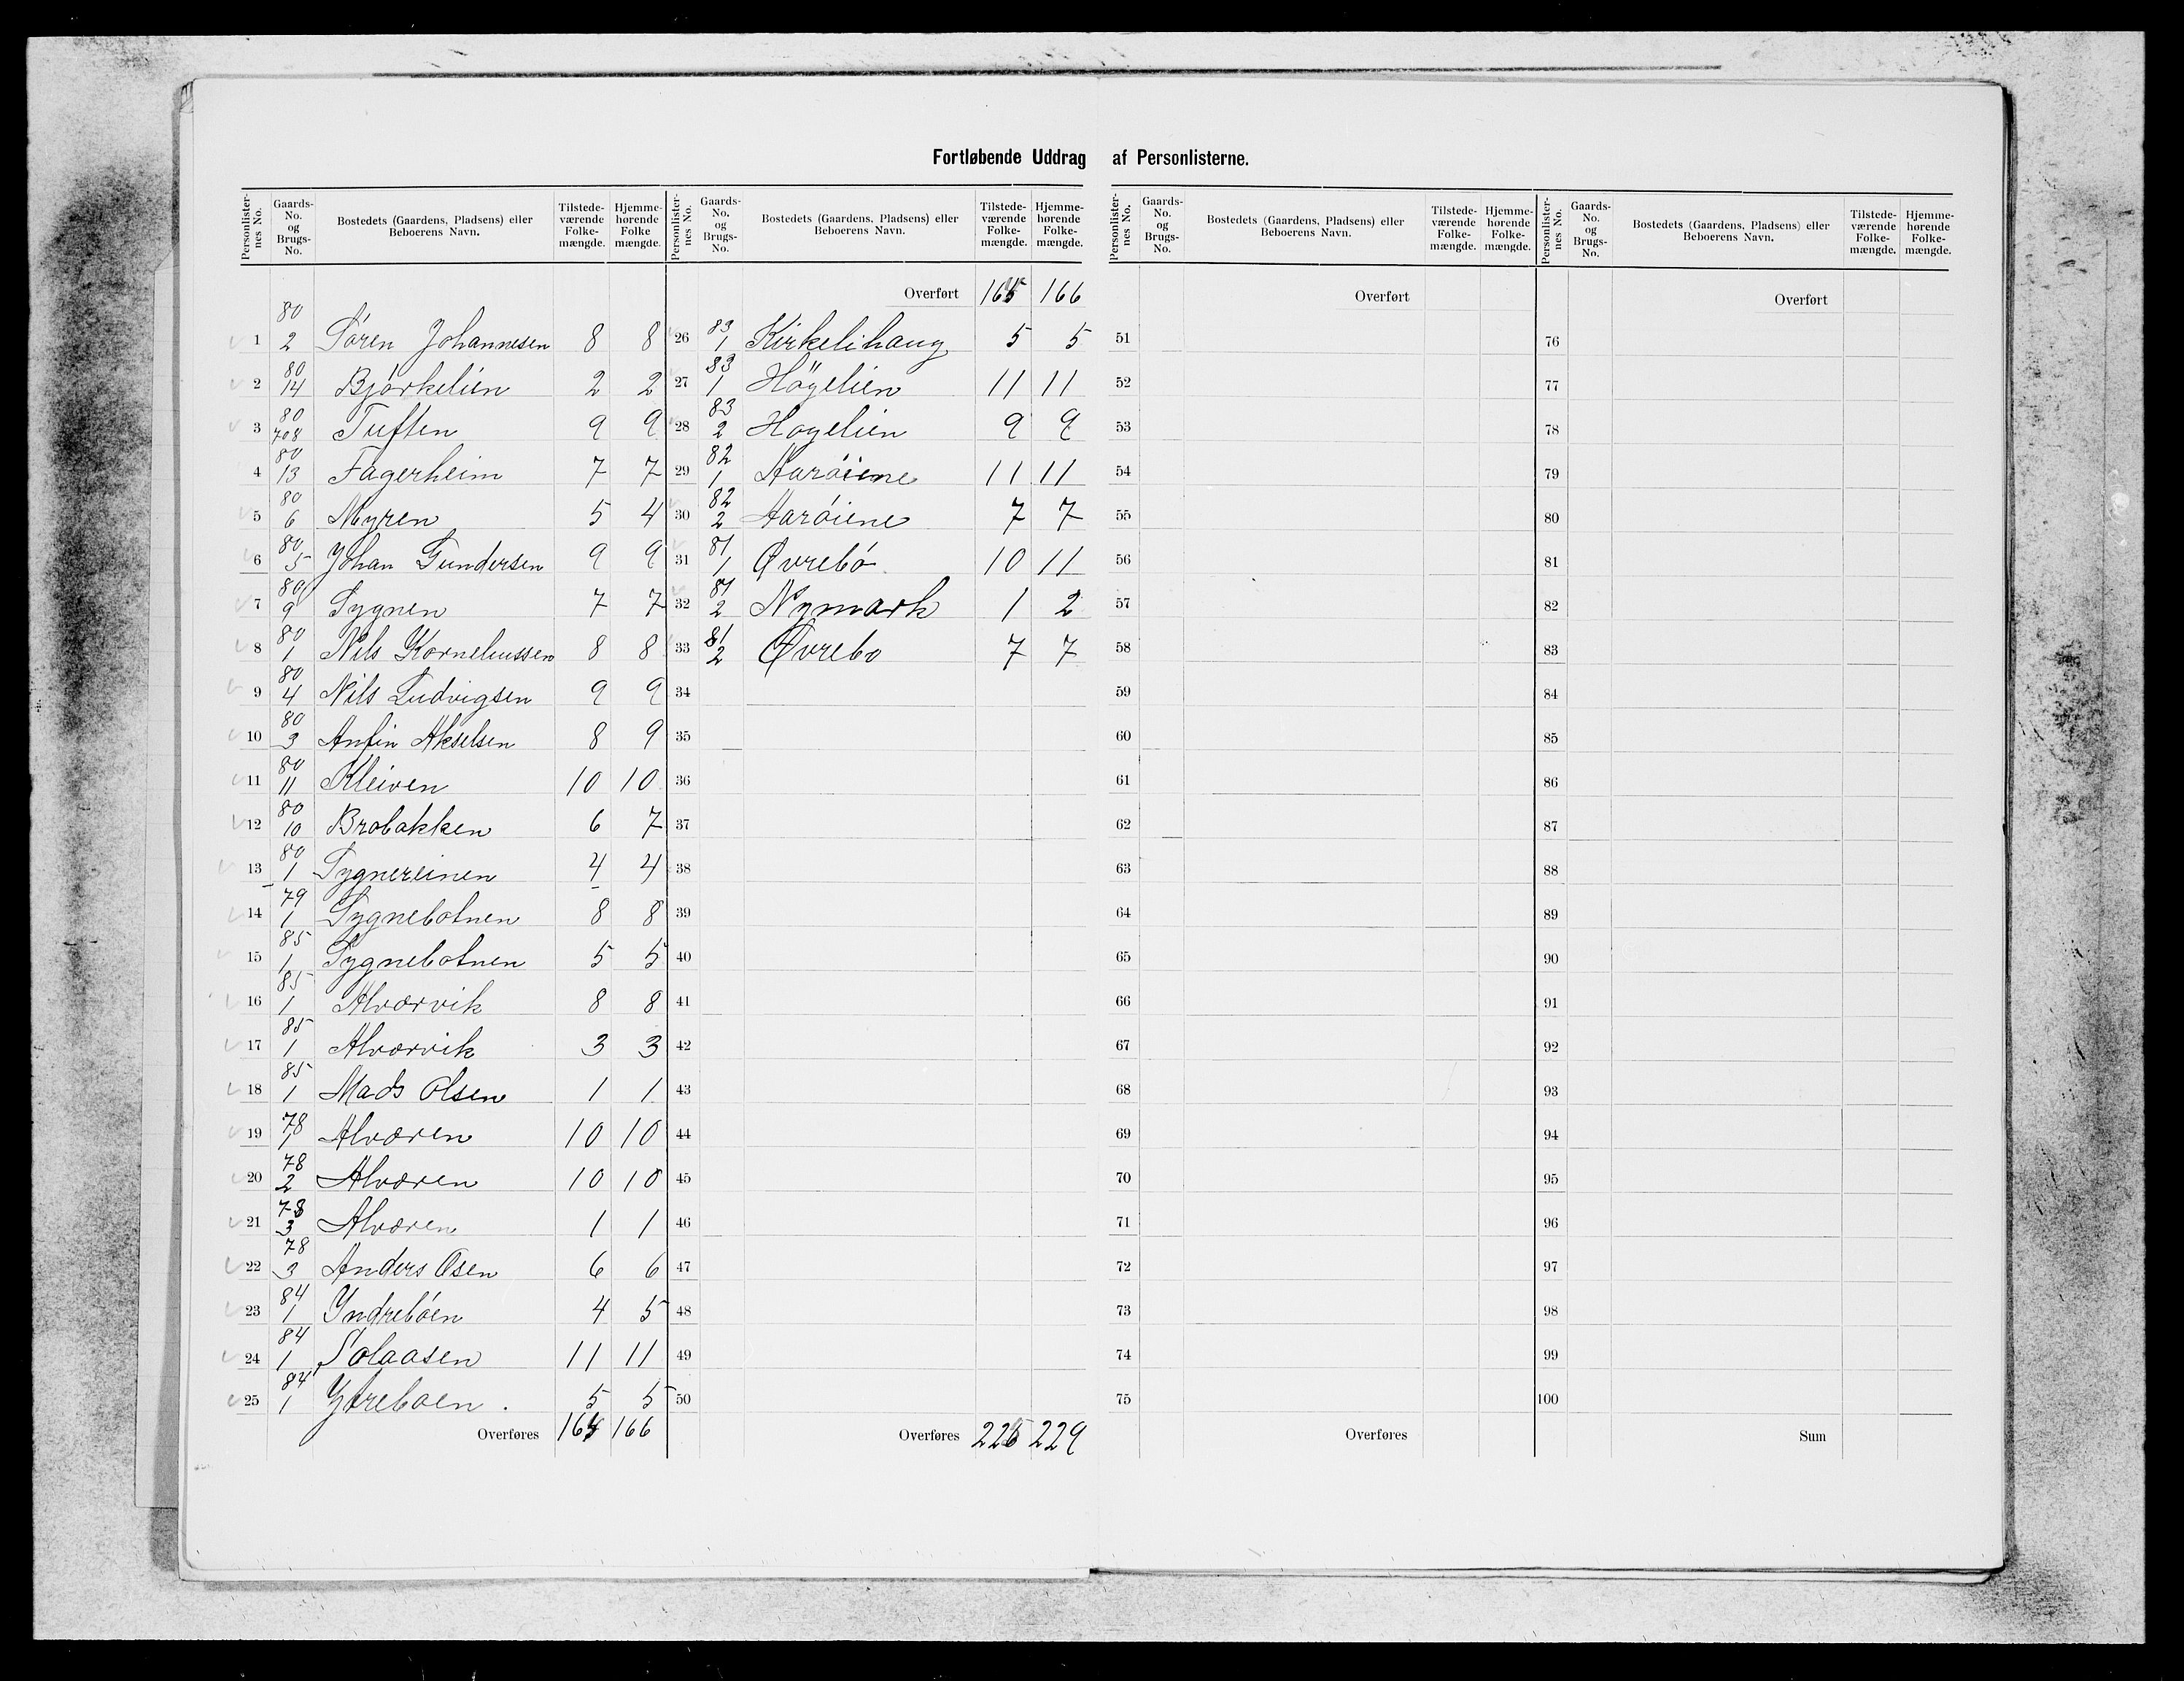 Fortløbende Uddrag af Personlisterne.
Personlisternes No. Gaards-No. og Brugs-No. Bostedets (Gaardens, Pladsens) eller Beboerens Navn. Tilstedeværende Folkemængde. Hjemmehørende Folkemængde.
1 80 2 Søren Johannesen 8 8
2 80 14 Bjørkelien 2 2
3 80 7 o 8 Tuften 9 9
4 80 13 Fagerheim 7 7
5 80 6 Myren 5 4
6 80 5 Johan Gundersen 9 9
7 80 9 Sygnen 7 7
8 80 1 Nils Korneliussen 8 8
9 80 4 Nils Ludvigsen 9 9
10 80 3 Anfin Akselsen 8 9
11 80 11 Kleiven 10 10
12 80 10 Brobakken 6 7
13 80 1 Sygnereinen 4 4
14 79 1 Sygnebotnen 8 8
15 85 1 Sygnebotnen 5 5
16 85 1 Alværvik 8 8
17 85 1 Alværvik 3 3
18 85 1 Mads Olsen 1 1
19 78 1 Alværen 10 10
20 78 2 Alværen 10 10
21 78 3 Alværen 1 1
22 78 3 Anders Osen 6 6
23 84 1 Yndrebøen 4 5
24 84 1 Solaasen 11 11
25 84 1 Ytreboen . 5 5
Overføres 166
Personlisternes No. Gaards-No. og Brugs-No. Bostedets (Gaardens, Pladsens) eller Beboerens Navn. Tilstedeværende Folkemængde. Hjemmehørende Folkemængde.
Overført 166
26 83 1 Kirkelihaug 5 5
27 83 1 Høgelien 11 11
28 83 2 Hogelien 9 9
29 82 1 Aarøiene 11 11
30 82 2 Aarøiene 7 7
31 81 1 Øvrebø 10 11
32 81 2 Nymark 1 2
33 81 2 Øvrebo 7 7
34
35
36
37
38
39
40
41
42
43
44
45
46
47
48
49
50
Overføres 229
Personlisternes No. Gaards-No. og Brugs-No. Bostedets (Gaardens, Pladsens) eller Beboerens Navn. Tilstedeværende Folkemængde. Hjemmehørende Folkemængde.
Overført
51
52
53
54
55
56
57
58
59
60
61
62
63
64
65
66
67
68
69
70
71
72
73
74
75
Overføres
Personlisternes No. Gaards-No. og Brugs-No. Bostedets (Gaardens, Pladsens) eller Beboerens Navn. Tilstedeværende Folkemængde. Hjemmehørende Folkemængde.
Overført
76
77
78
79
80
81
82
83
84
85
86
87
88
89
90
91
92
93
94
95
96
97
98
99
100
Sum